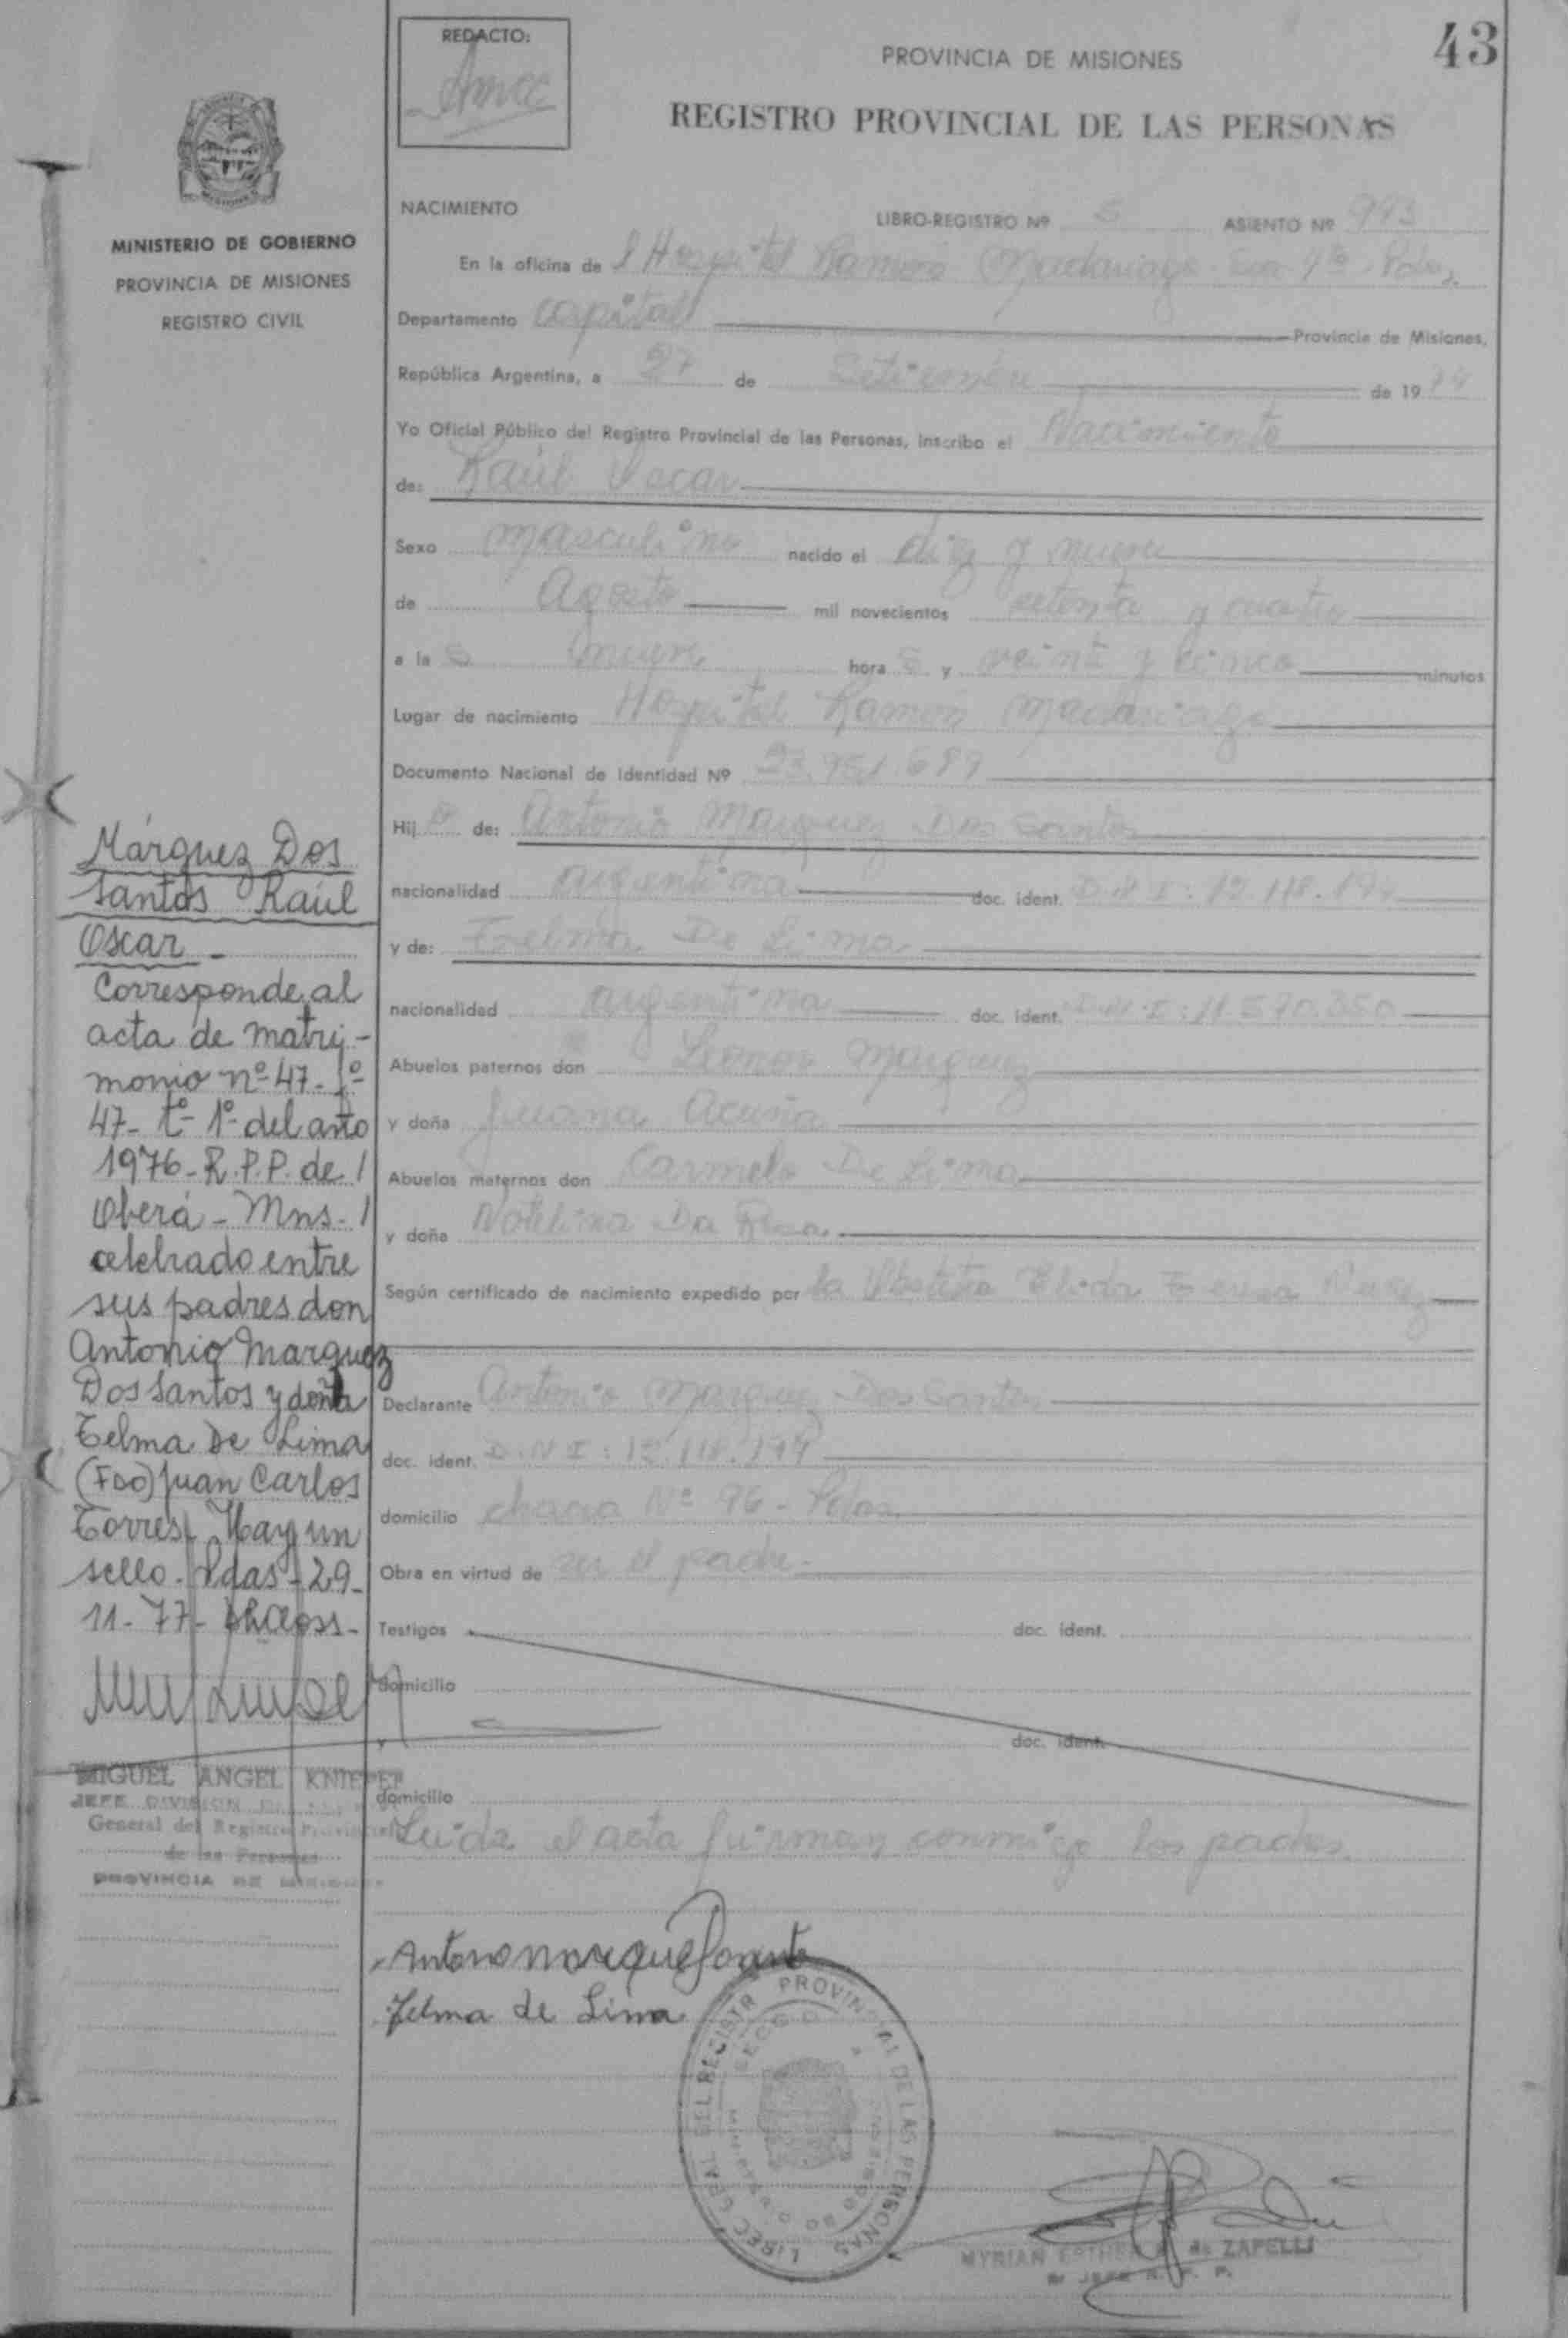 43
REDACTO:
PROVINCIA DE MISIONES
REGISTRO PROVINCIAL DE LAS PERSONAS
MINISTERIO DE GOBIERNO
PROVINCIA DE MISIONES
REGISTRO CIVIL
NACIMIENTO
LIBRO-REGISTRO Nº 5 ASIENTO Nº 993
En la oficina de l Hospital Ramón Madariaga
Departamento capital Provincia de Misiones,
República Argentina, a 27 de Setiembre de 1974
Yo Oficial Público del Registro Provincial de las Personas, inscribo el Nacimiento
de: Raúl Oscar
Sexo masculino nacido el diez y nueve
de Agosto mil novecientos setenta y cuatro
a las nueve horas y veinte y cinco minutos
Lugar de nacimiento Hospital Ramon Madariaga
Documento Nacional de Identidad Nº 23.951.689
Hijo de: Antonio Marquez Dos Santos
nacionalidad argentina doc. ident. D.N.I: 12.118.194
y de: Telma De Lima
nacionalidad argentina doc. ident. D.N.I: 11.570.350
Abuelos paternos don Leonor Marquez
y doña Juana Acuña
Abuelos maternos don Carmelo De Lima
y doña Da Rosa
Según certificado de nacimiento expedido por la Obstetra Elida Teresa
Declarante Antonio Marquez Dos Santos
doc. ident. D.N.I: 12.118.194
domicilio chacra Nº 96 - Pdas
Obra en virtud de ser el padre.
Testigos doc. ident.
domicilio
y doc. ident.
domicilio
Leida el acta firman conmigo los padres.
Márquez Dos
Santos Raúl
Oscar -
Corresponde al
acta de matri-
monio nº 47- fº
47- tº 1º del año
1976- R.P.P. de
Oberá - Mns-
celebrado entre
sus padres don
Antonio Marquez
Dos Santos y doña
Telma De Lima
(Fdo) Juan Carlos
Torres. Hay un
sello. Pdas - 29-
11-77-
MIGUEL ANGEL
JEFE DIVISION
General del Registro Provincial
de las Personas
PROVINCIA DE MISIONES
Telma de Lima
DEL REGISTR PROVINCIAL DE LAS PERSONAS
MYRIAN ESTHER de ZAPELLI